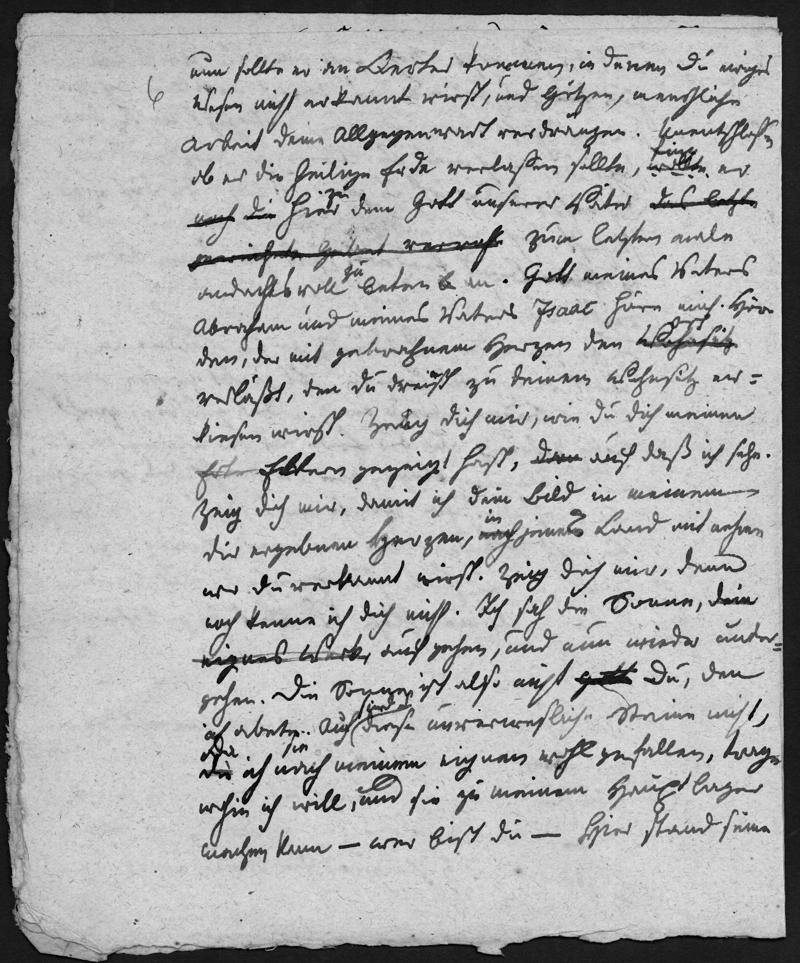 nun sollte er an Oerter kommen, in denen Du ewiges
Wesen nicht erkannt wirst, und Götzen, menschliche
Arbeit deine Allgegenwart verdrängen. Unentschloßen
ob er die heilige Erde verlassen sollte, fing er
noch die hier zu dem Gott unserer Väter das letzte
Gebet zum letzten male
andachtsvoll zu beten an. Gott meines Vaters
Abraham und meines Vaters Isaac höre mich. Höre
den, der mit gebrochnem Herzen den Wohnsitz
verläßt, den du dreist zu deinem Wohnsitz er=
kiesen wirst. Zeig dich mir, wie du dich meinen
Eltern gezeigt hast, auf daß ich sehe.
Zeig dich mir, damit ich dein Bild in meinem
dir ergebnen Herzen, in jenes Land mit nehme
wo du verkannt wirst. Zeig dich mir, denn
noch kenne ich dich nicht. Ich sah die Sonne, dein
eignes Werk, aufgehen, und nun wieder unter=
gehen. Die Sonne ist also nicht Gott Du, den
ich abete. Auch sind diese unverwesliche Steine nicht,
die ich sie nach meinem eignen wohlgefallen, trage
wohin ich will, und sie zu meinem Hauptlager
machen kann – wer bist du – Hier stand seine